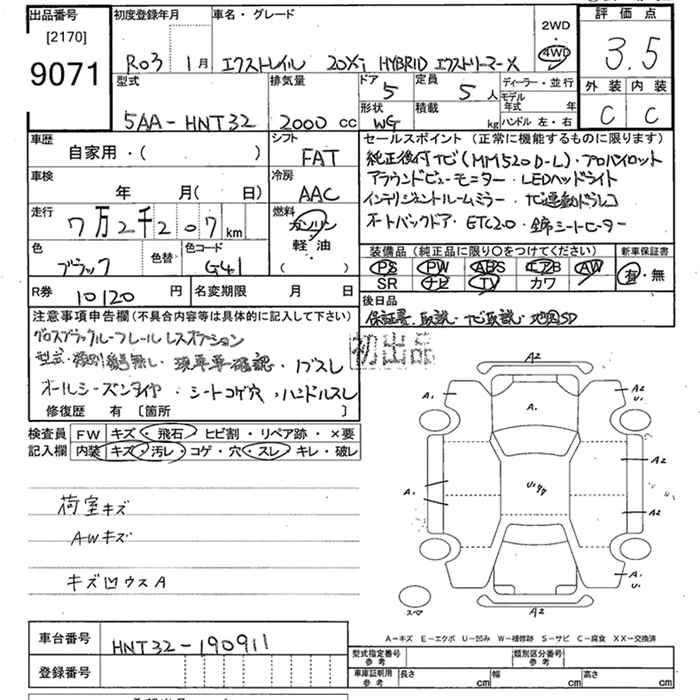 出品番号
[2170]
9071
初度登録年月
R03 1月
車名・グレード
エクストレイル 20Xi HYBRID エクストリーマーX
2WD
・
4WD
評価点
3.5
外装 内装
C C
型式
5AA-HNT32
排気量
2000 cc
ドア
5
定員
5 人
形状
WG
積載
kg
ディーラー・並行
モデル
年式 年
ハンドル 左・右
車歴
自家用・( )
シフト
FAT
車検
年 月( 日)
冷房
AAC
走行
7万2千207 km
燃料
ガソリン
軽油
( )
色
ブラック
色替
色コード
G41
R券 10120 円
名変期限 月 日
セールスポイント(正常に機能するものに限ります)
純正後付ナビ(MM520D-L)・プロパイロット
アラウンドビューモニター・LEDヘッドライト
インテリジェントルームミラー・ナビ連動ドラレコ
オートバックドア・ETC2.0・全席シートヒーター
装備品(純正品に限り○をつけてください) 新車保証書
PS PW ABS エアB AW 有・無
SR ナビ TV カワ
後日品
保証書・取説・ナビ取説・地図SD
注意事項申告欄(不具合内容等は具体的に記入して下さい)
グロスブラックルーフレールレスオプション
型式・類別 無し・現車車確認・
オールシーズンタイヤ・シートコゲ穴・ハンドルスレ
修復歴 有 [箇所 ]
初出品
検査員 FW キズ・飛石・ヒビ割・リペア跡・×要
記入欄 内装 キズ・汚レ・コゲ・穴・スレ・キレ・破レ
荷室キズ
AWキズ
キズ凹ウスA
A2
A1
A2
U1
A.
A2
A1
A2
A1
U1
A2
スペア
A-キズ E-エクボ U-凹み W-補修跡 S-サビ C-腐食 XX-交換済
車台番号 HNT32-190911
登録番号
型式指定番号
参考
類別区分番号
参考
車庫証明用
参考
長さ cm 幅 cm 高さ cm